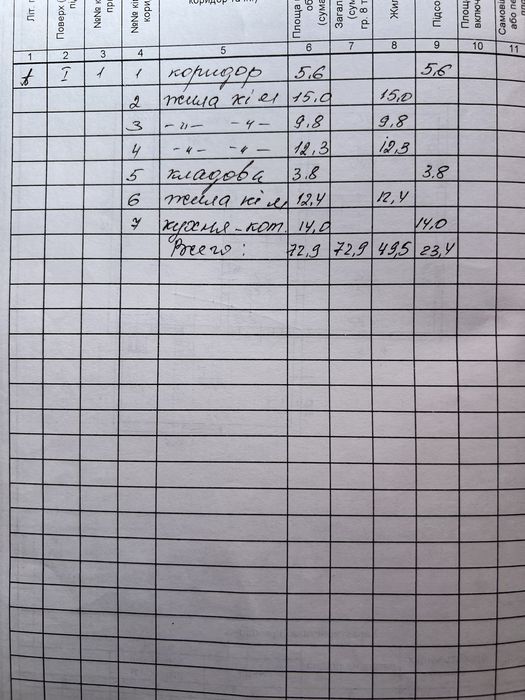 Літ.
Поверх
№№
№№
коридор
Площа
(сума
Загал
(сум
гр. 8 т
Жил
Підсо
Площ
включ
Самови
або пе
1 2 3 4 5 6 7 8 9 10 11
А I 1 1 коридор 5,6 5,6
2 жила кім 15,0 15,0
3 -"- -"- 9,8 9,8
4 -"- -"- 12,3 12,3
5 кладова 3,8 3,8
6 жила кім 12,4 12,4
7 кухня-кот. 14,0 14,0
Всего: 72,9 72,9 49,5 23,4